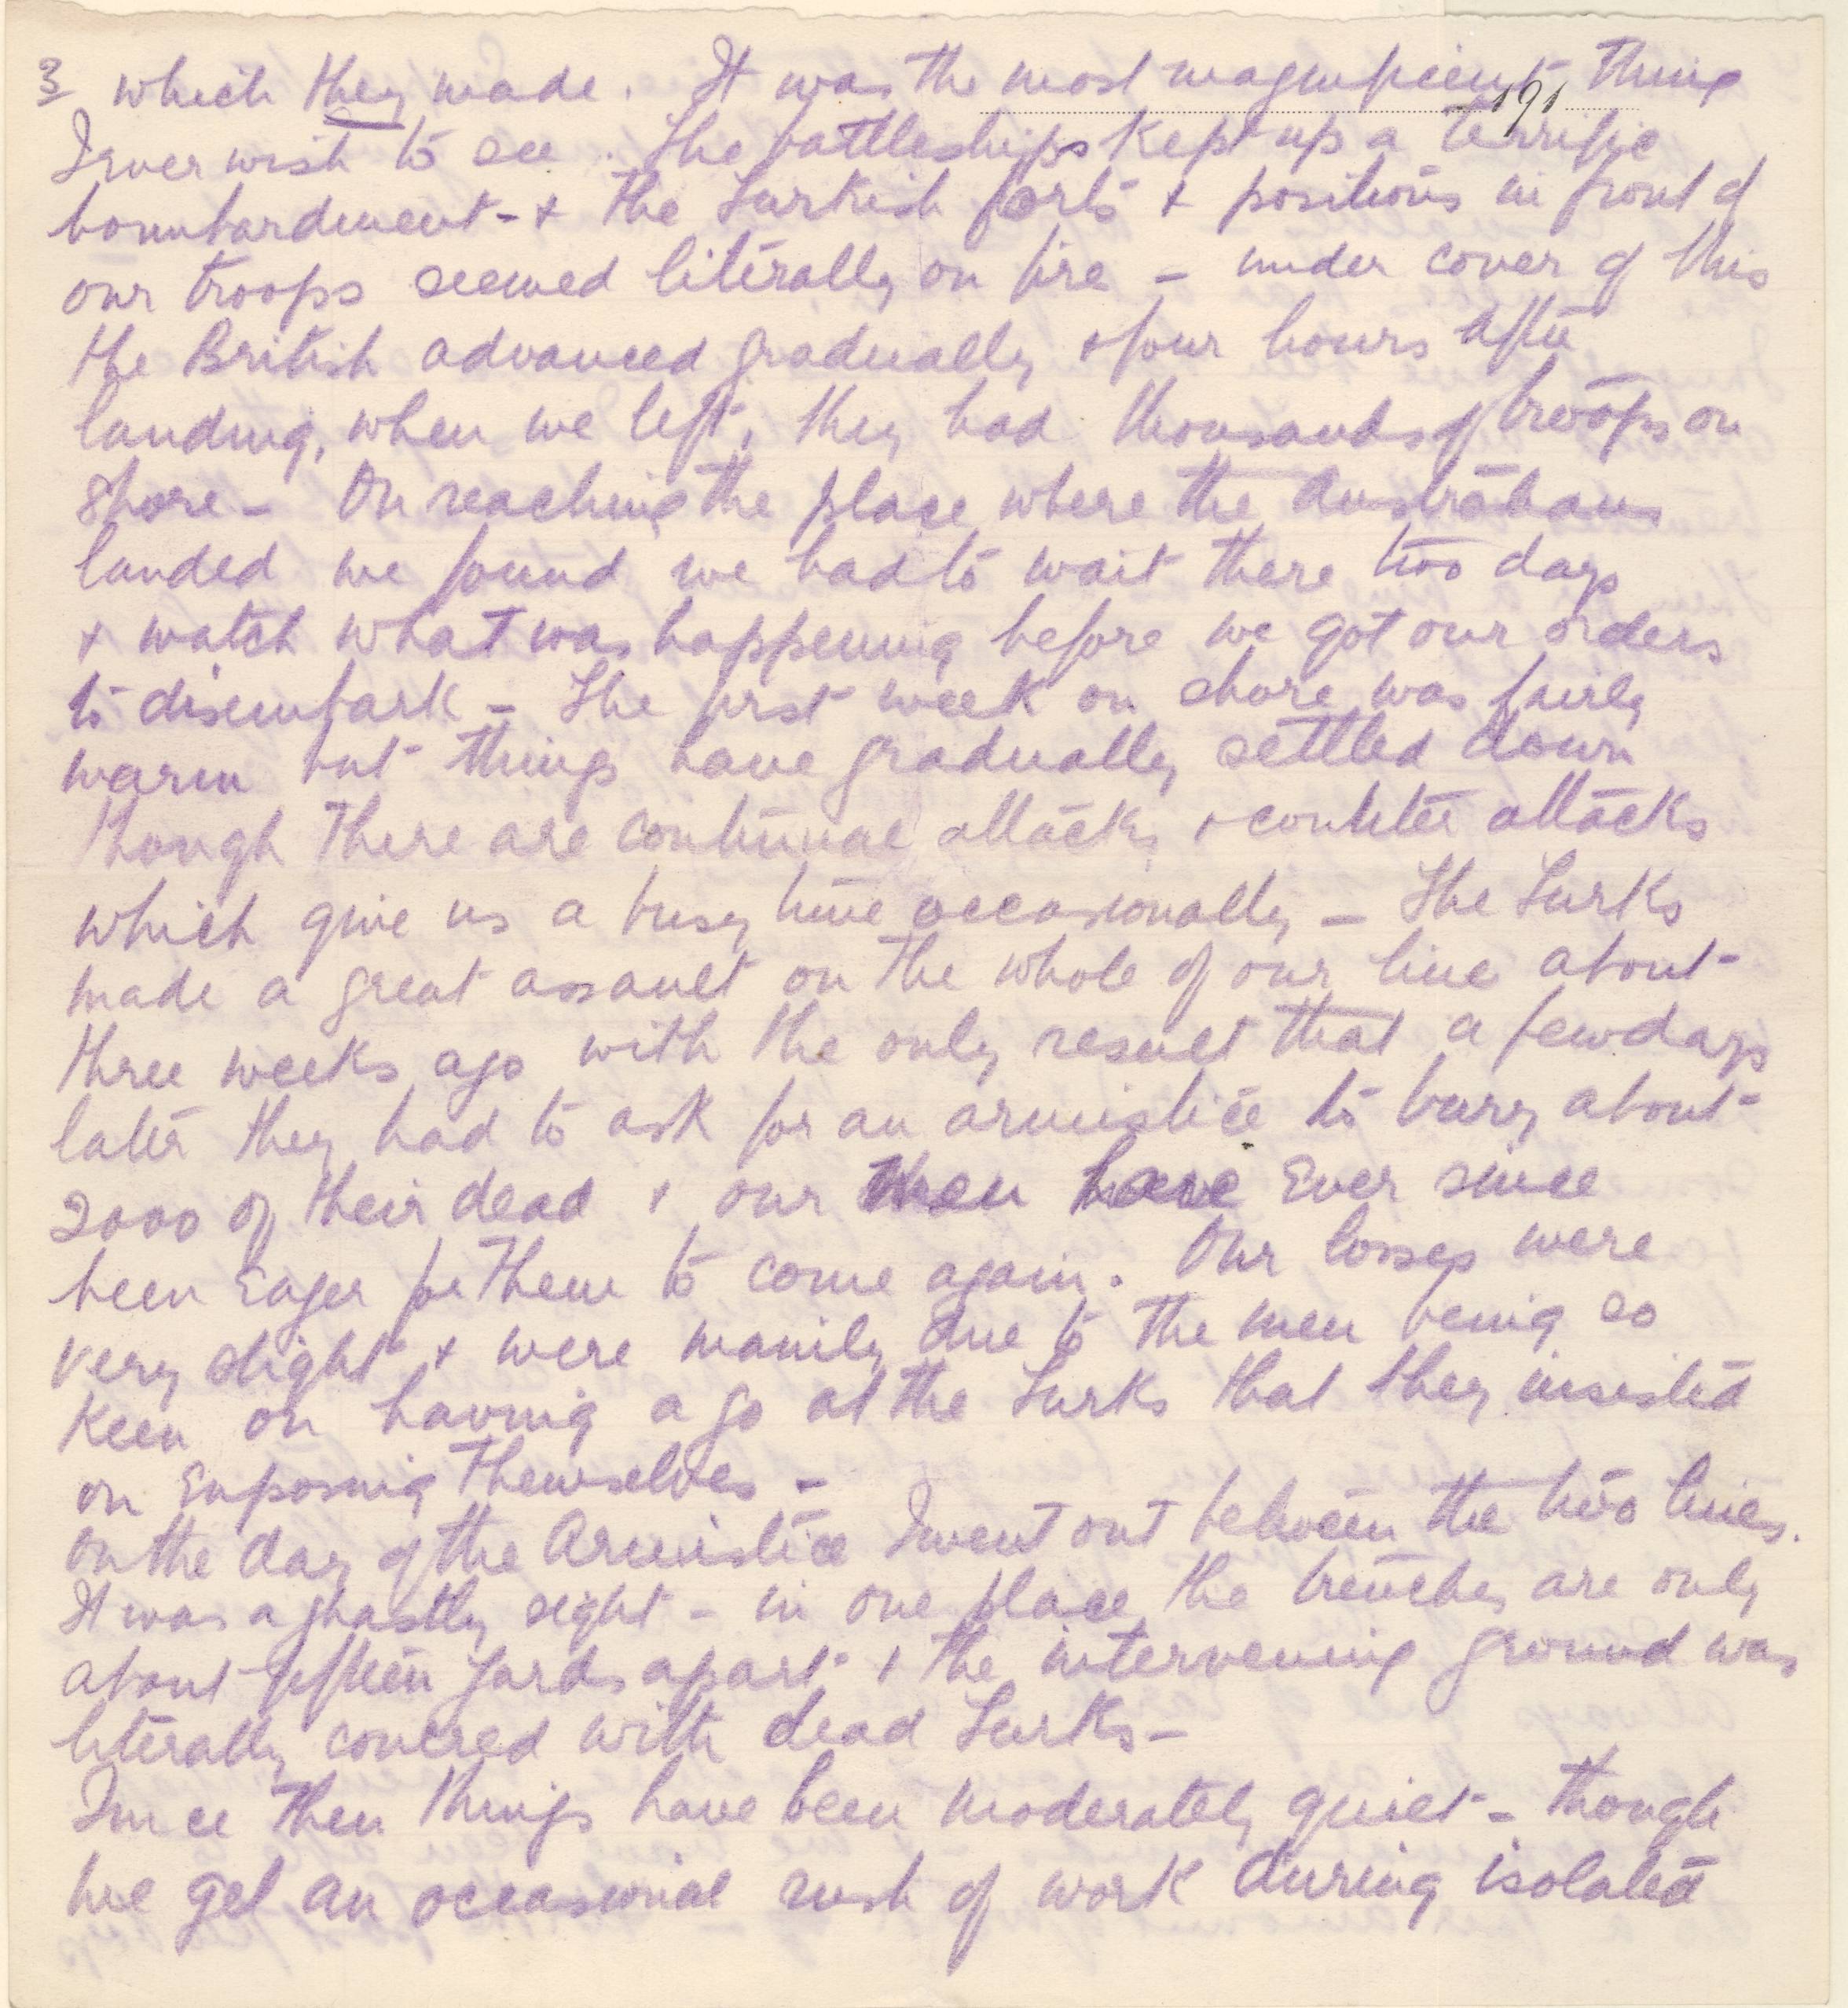 3 which they made. It was the most magnificent thing
191
I ever wish to see. The battleships kept up a terrific
bombardment - & the Turkish forts & positions in front of
our troops seemed literally on fire - under cover of this
the British advanced gradually & four hours after
landing, when we left, they had thousands of troops on
shore - On reaching the place where the Australians
landed we found we had to wait there two days
& watch what was happening before we got our orders
to disembark - The first week on shore was fairly
warm but things have gradually settled down
though there are continual attacks & counter attacks
which give us a busy time occasionally - The Turks
made a great assault on the whole of our line about
three weeks ago with the only result that a few days
later they had to ask for an armistice to bury about
2000 of their dead & our men have ever since
been eager for them to come again. Our losses were
very slight & were mainly due to the men being so
keen on having a go at the Turks that they insisted
on exposing themselves -
On the day of the Armistice I went out between the two lines.
It was a ghastly sight - in one place the trenches are only
about fifteen yards apart & the intervening ground was
literally covered with dead Turks -
Since then things have been moderately quiet - though
we get an occasional rush of work during isolated